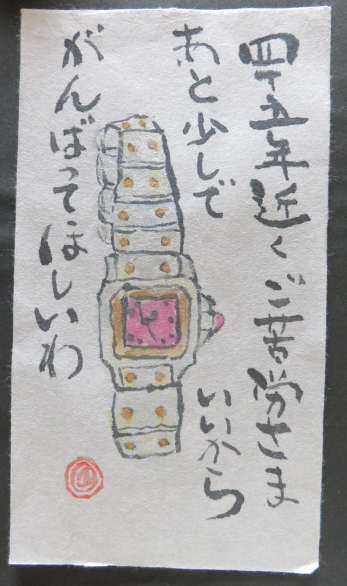 四十五年近くご苦労さま
あと少しで
いいから
がんばってほしいわ